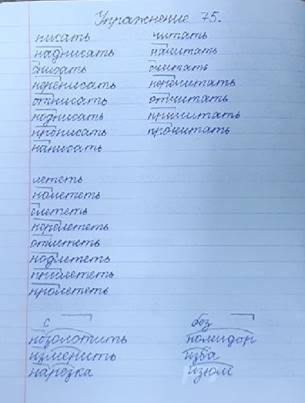 Упражнение 75.
писать читать
надписать начитать
списать считать
переписать перечитать
отписать отчитать
подписать причитать
прописать прочитать
написать
лететь
налететь
слететь
перелететь
отлететь
подлететь
прилететь
пролететь
с без
позолотить помидор
измерить изба
нарезка изюм